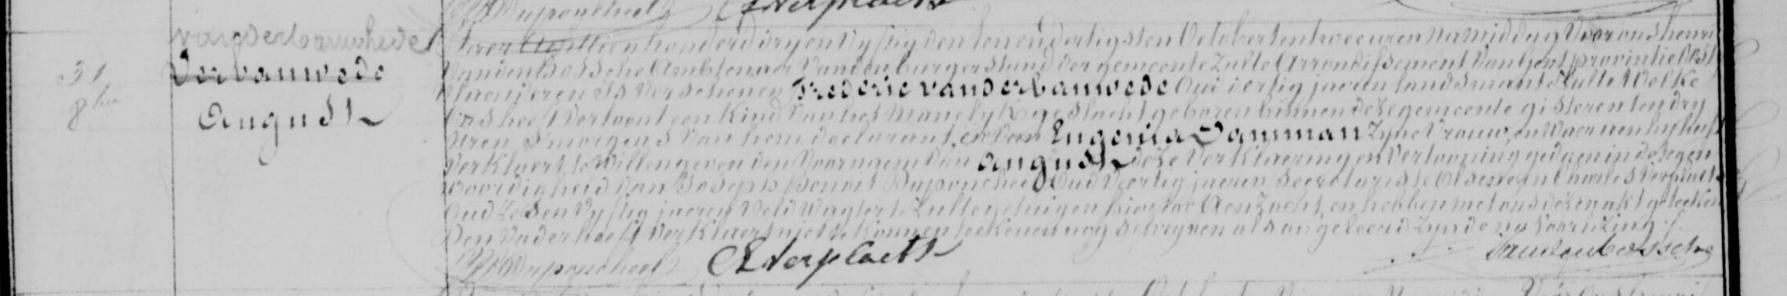 vanderbauwhede
31
8ber
Verbauwede
August
Jaer Agttien honderd dry en vyftig den een en dertigsten October ten twee uren namiddag Voor ons henri
Vanden Bossche Ambtenaer Van den burgerstand der gemeente Zulte Arrondissement Van Gent provintie
Vlaenderen is Verschenen Frederic vanderbauwede Oud jaeren landsman te Zulte Welke
Ons heeft Vertoont een Kind Van het Manelyk geslacht geboren binnen deze gemeente gisteren ten dry
Uren S'morgens Van hem declarant, en Van Eugenia Damman Zyne Vrouw, en Waer aen hy heeft
Verklaert te Willen geven den Voornaem Van August deze Verklaering en Vertooning gedaen in de tegen
woordigheid Van Joseph Benoit Duponcheel Oud Veertig jaeren Secretaris te Olsene en Verplaetse
Oud Zes en Vyftig jaeren Veld Wagter te Zulte getuigen Aenzocht, en hebben met ons dezen akt geteeken
Den Vader heeft Verklaert niet te konnen teekenen nog schryven als ongeleerd Zynde na Voorlezing
Duponcheel Verplaetse Vandenbossche